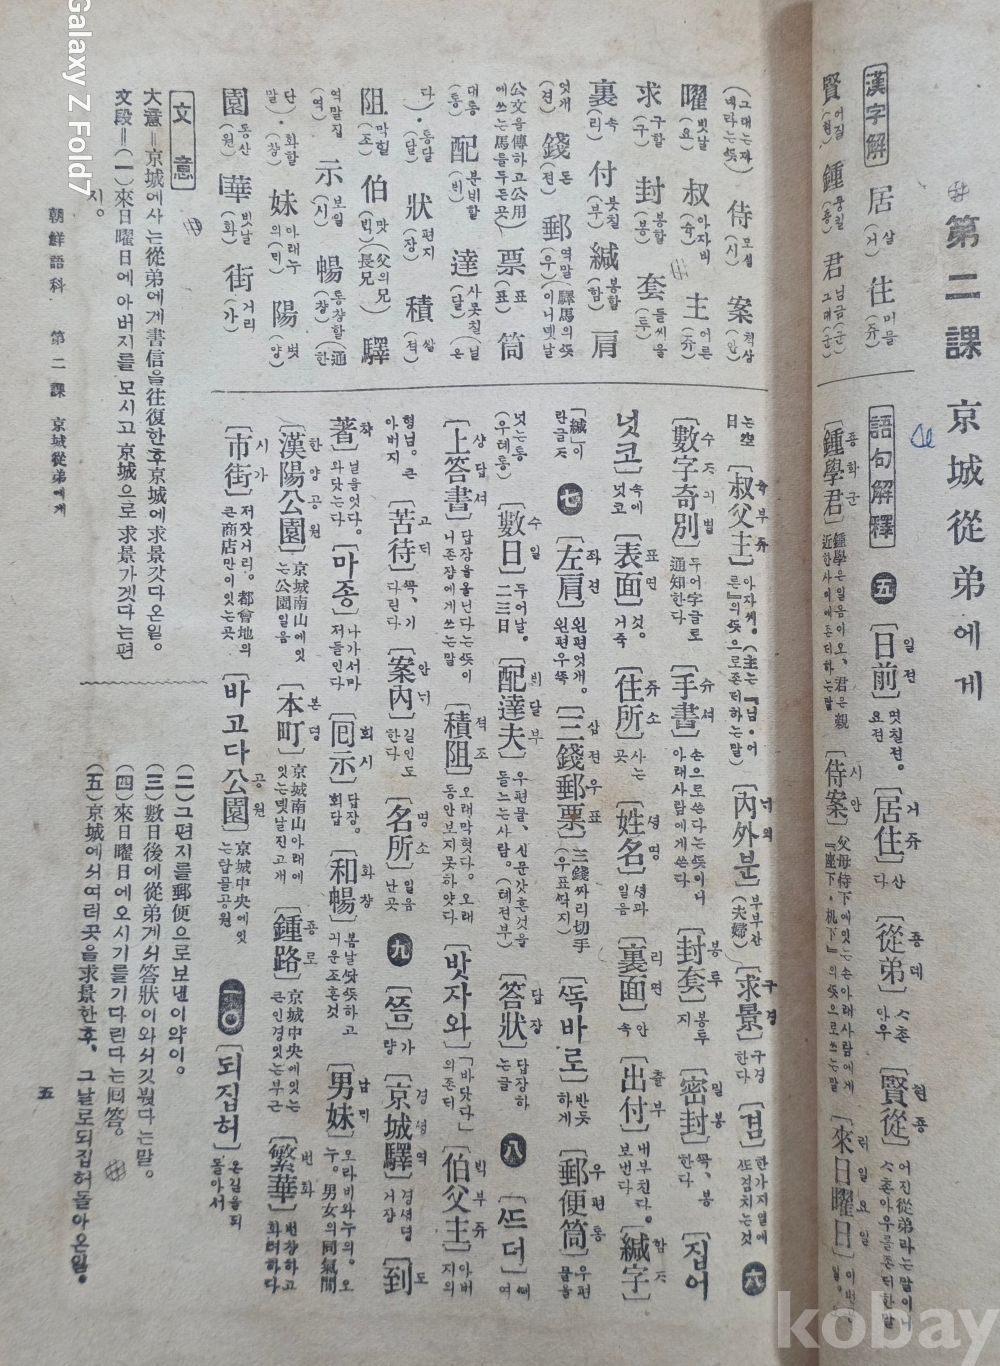 第二課 京城從弟에게
漢字解
賢 어질(현) 鍾 (종) 君 님금(군) 그대(군)
居 살(거) 住 머믈(쥬)
(그대는자네라는뜻) 侍 모실(시) 案 책상(안)
曜 빗날(요) 叔 아자비(슉) 主 어른(쥬)
求 구할(구) 封 봉할(봉) 套 (투)
裏 속(리) 付 붓칠(부) 緘 봉할(함) 肩
엇개(견) 錢 돈(전) 郵 역말(우)
公文을傳하고公用에쓰는馬를두든곳) 票 표(표) 筒
대통(통) 配 분비할(비) 達 사못칠(달)
다)·통달(달) 狀 편지(장) 積 쌀(적)
阻 막힐(조) 伯 맛(父의兄)(백)(長兄) 驛
역말집(역) 示 보일(시) 暢 통창할(창)
단·화할(창) 妹 아래누의(매) 陽 볏(양)
園 동산(원) 華 빗날(화) 街 거리(가)
語句解釋
五 [日前] 몃칠전。 [居住] 산다 [從弟] 사촌아우 [賢從] 어진從弟라는말이니
[鍾學君] 鍾學은일음이오、君은親近한사이에존대하는말 [侍案] 父母侍下에잇는손아래사람에게『座下·机下』의뜻으로쓰는말 [來日曜日]
[叔父主] 아자씨。(主는『님·어른』의뜻으로존대하는말) [內外분] 부부(夫婦) [求景] 구경한다 [겸] 한가지열에 六
[數字奇別] 두어字글로通知한다 [手書] 손으로쓴다는뜻이니아래사람에게쓴다 [封套] 봉투지 [密封] 꼭、봉한다 [집어
넛코] 속에넛코 [表面] 것。거죽 [住所] 사는곳 [姓名] 성과일음 [裏面] 안속 [出付] 내부친다。보낸다 [緘字]
「緘」이란글자 七 [左肩] 왼편엇개。왼편우쪽 [三錢郵票] 三錢짜리切手(우표딱지) [똑바로] 반듯하게 [郵便筒] 우편물을
넛는통(우톄통) [數日] 두어날。二三日 [配達夫] 우편물、신문갓흔것을돌느는사람。(톄전부) [答狀] 답장하는글 八 [뜨더]
[上答書] 답장을올닌다는뜻이니존장에게쓰는말 [積阻] 오래막혓다。오래동안보지못하얏다 [밧자와] 「바닷다」의존대 [伯父主] 아버지의
형님。큰아버지 [苦待] 꼭、기다린다 [案內] 길인도한다 [名所] 일음난곳 九 [쯤] 가량 [京城驛] 경성뎡거장 [到
著] 널을엇다。와닷는다 [마종] 나가서마저들인다 [回示] 답장。회답 [和暢] 봄날뜻하고긔운조흔것 [男妹] 오라비와누의。오누。男女의同氣間
[漢陽公園] 京城南山에잇는公園일음 [本町] 京城南山아래에잇는 [鍾路] 京城中央에잇는큰인경잇는부근 [繁華] 번창하고화려하다
[市街] 저잣거리。都會地의큰商店만이잇는곳 [바고다公園] 京城中央에잇는탑골공원 一〇 [되집허] 온길을되돌아서
文意
大意=京城에사는從弟에게書信을往復한후京城에求景갓다온일。
文段=(一)來日曜日에아버지를모시고京城으로求景가겟다는편
지。
(二)그편지를郵便으로보낸이약이。
(三)數日後에從弟게서答狀이와서깃벗다는말。
(四)來日曜日에오시기를기다린다는回答。
(五)京城에서여러곳을求景한후、그날로되집허돌아온일。
朝鮮語科 第二課 京城從弟에게
五
Galaxy Z Fold7
kobay